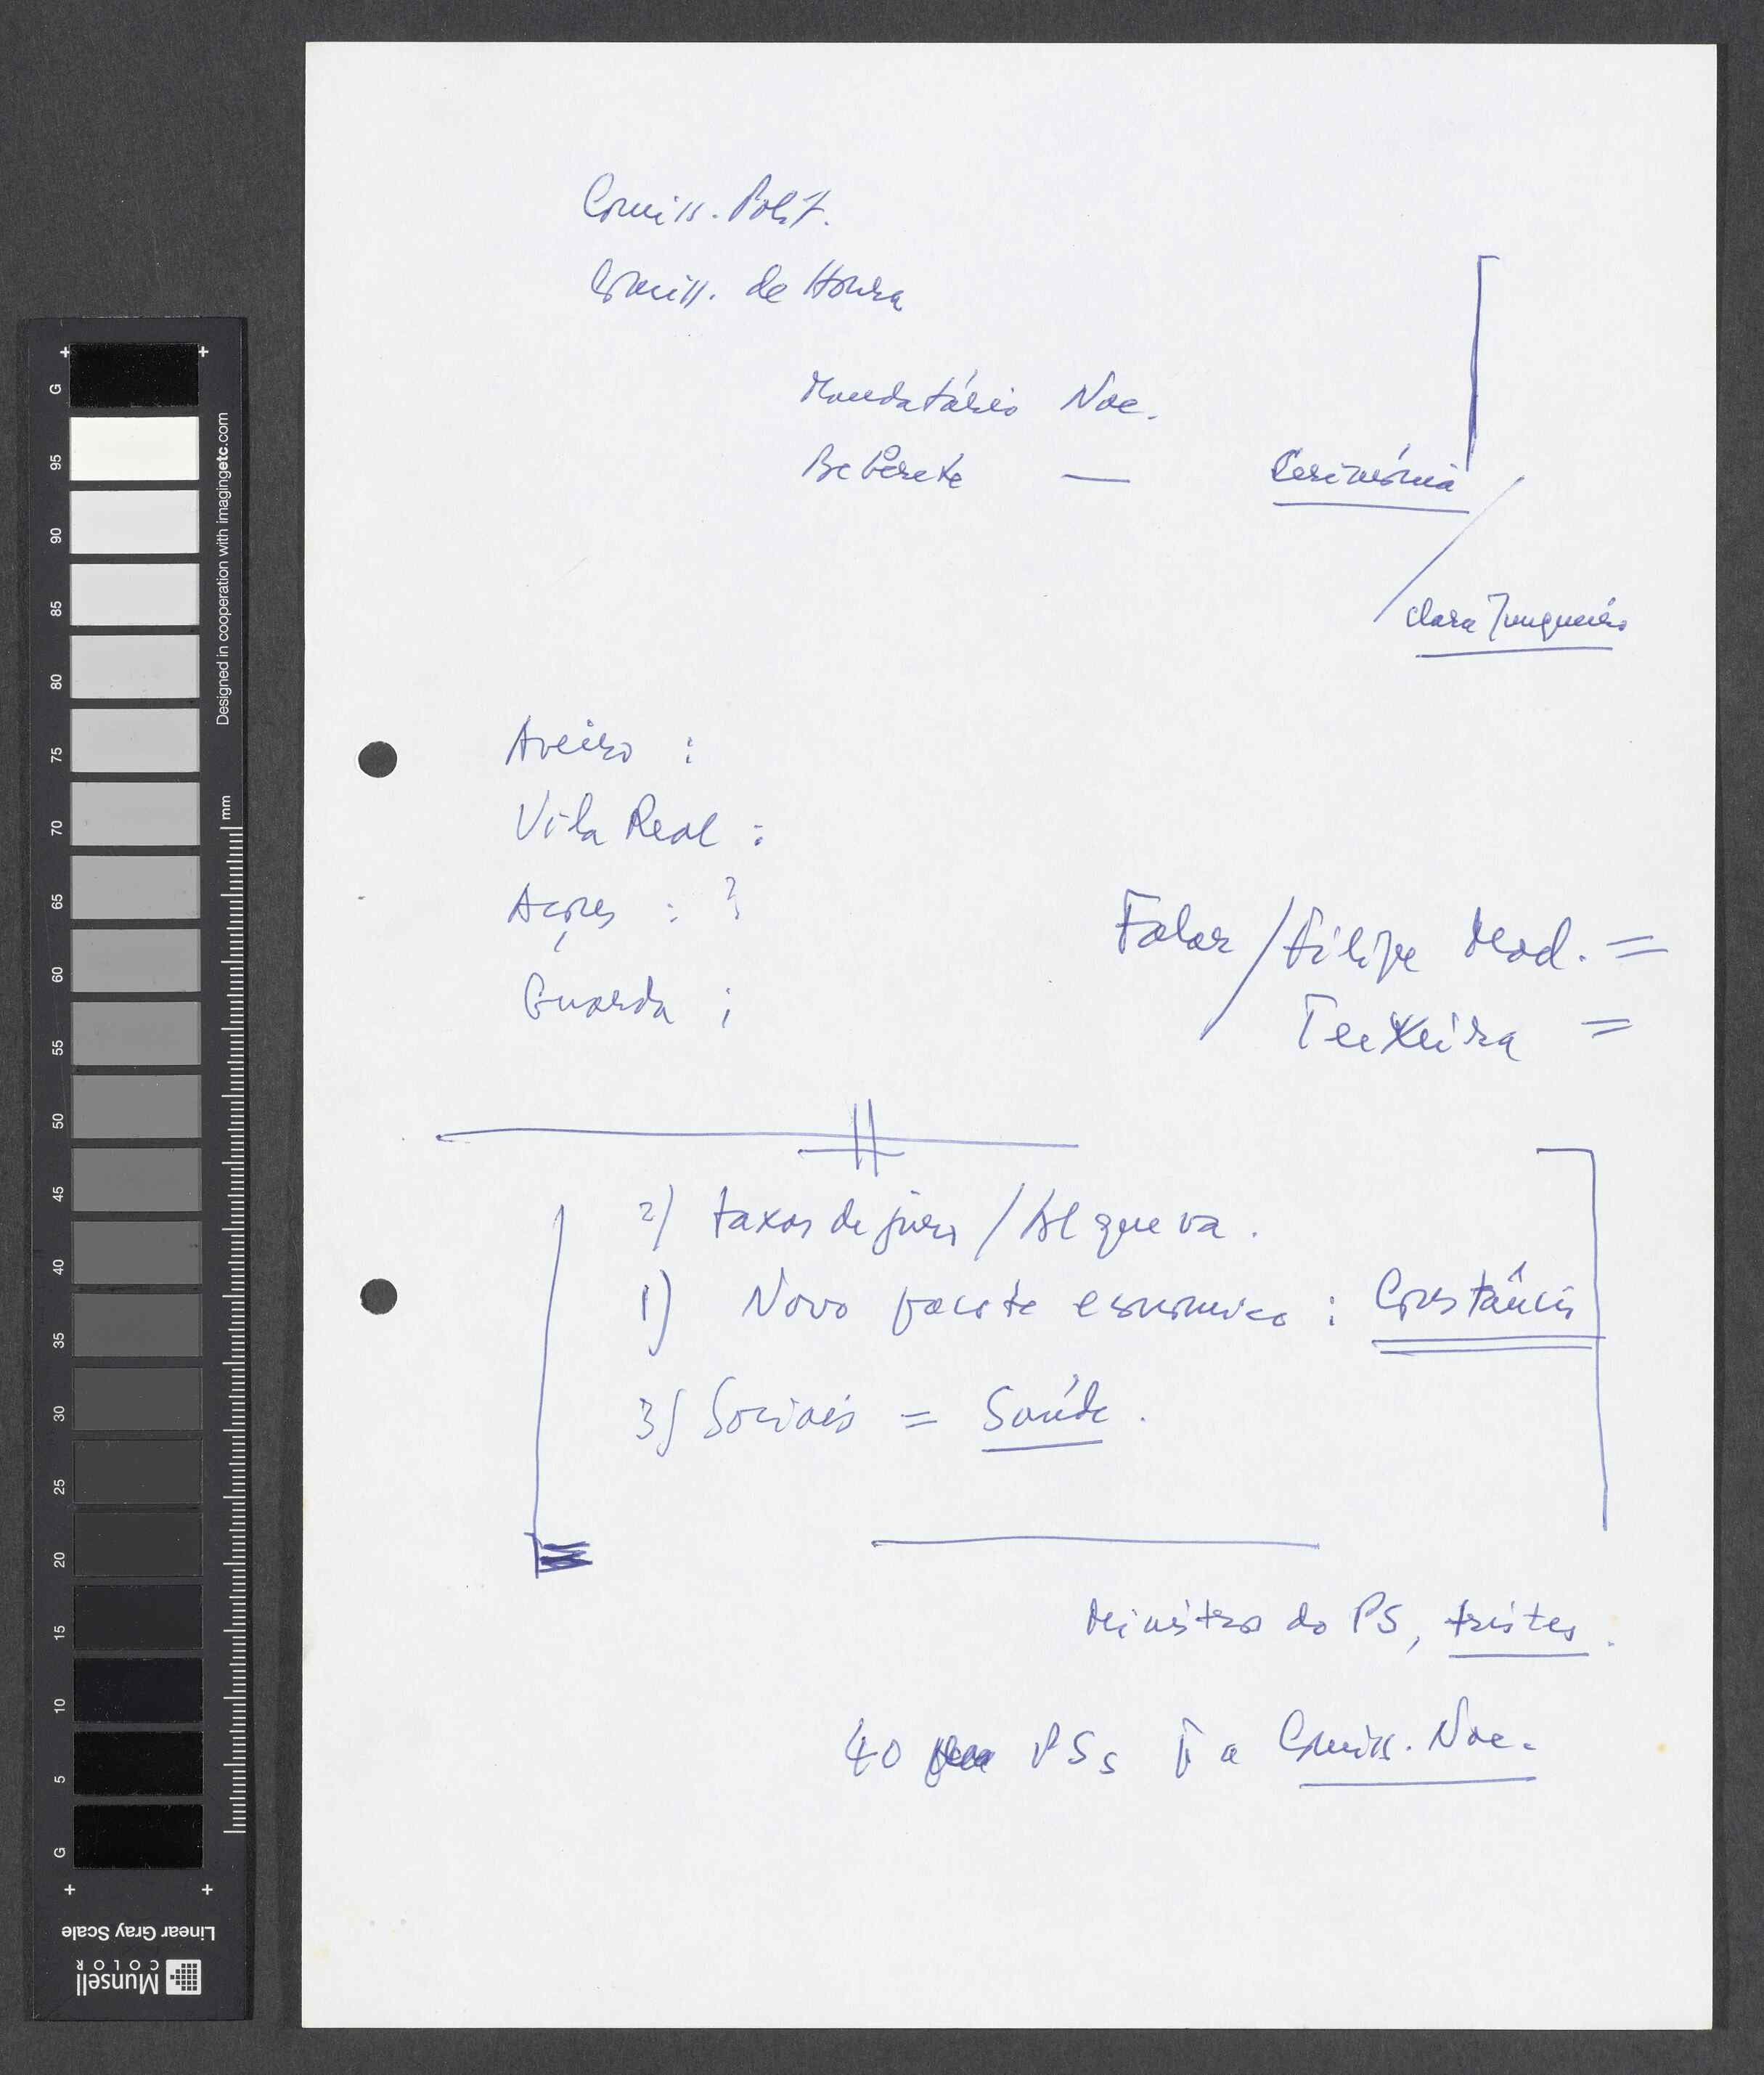 Comiss. Polit.
Comiss. de Honra
Mandatário Nac.
Beberete — Cerimónia
Clara Junqueiro
Aveiro :
Vila Real :
Açores : ?
Guarda :
Falar / Filipe Mad. =
Teixeira =
2) taxas de juro / Alqueva.
1) Novo pacote economico : Constâncio
3) Sociais = Saúde.
Ministros do PS, tristes.
40 PSs a Comiss. Nac.
G
95
90
85
80
75
70
65
60
55
50
45
40
35
30
25
20
15
10
5
G
Designed in cooperation with imagingetc.com
mm
Linear Gray Scale
Munsell
COLOR